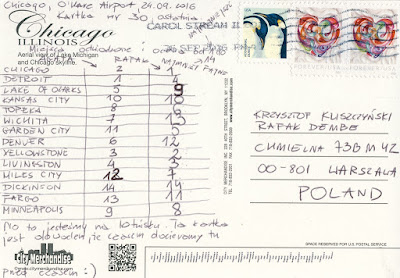 Chicago, O'Hare Airport, 24.09.2016
Kartka nr 30, ostatnia
CAROL STREAM IL
Chicago
ILLINOIS
Aerial view of Lake Michigan
and Chicago Skyline.
Miejsca odwiedzone:
RAFAŁ
CHICAGO 2 1
DETROIT 1 4
LAKE OF OZARKS 5 9
KANSAS CITY 10 10
TOPEKA 8 6
WICHITA 7 13
GARDEN CITY 11 5
DENVER 6 12
YELLOWSTONE 3 2
LIVINGSTON 4 3
MILES CITY 12 7
DICKINSON 14 14
FARGO 13 11
MINNEAPOLIS 9 8
No to jesteśmy na lotnisku. Ta kartka
jest dowodem, że czasem docieramy tu
przed czasem :)
KRZYSZTOF KLISZCZYŃSKI
RAFAŁ DEMBE
CHMIELNA 73B M 42
00-801 WARSZAWA
POLAND
City Merchandise
www.citymerchandise.com
SPACE RESERVED FOR U.S. POSTAL SERVICE